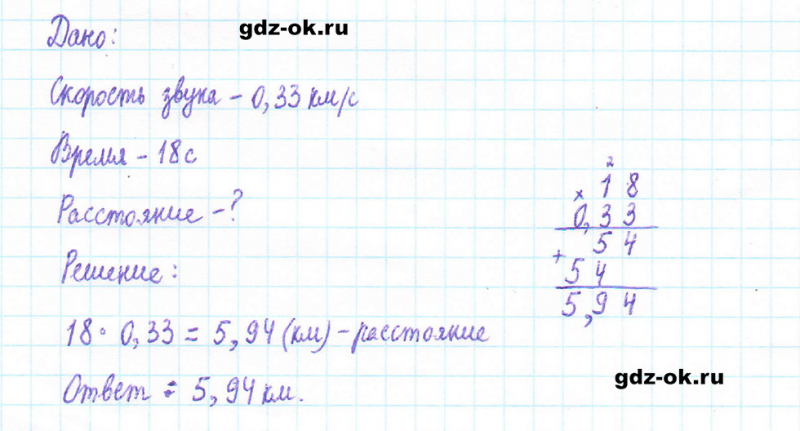 gdz-ok.ru
Дано:
Скорость звука - 0,33 км/с
Время - 18 с
Расстояние - ?
Решение:
18 · 0,33 = 5,94 (км) - расстояние
Ответ : 5,94 км.
2
× 18
0,33
+ 54
54
5,94
gdz-ok.ru